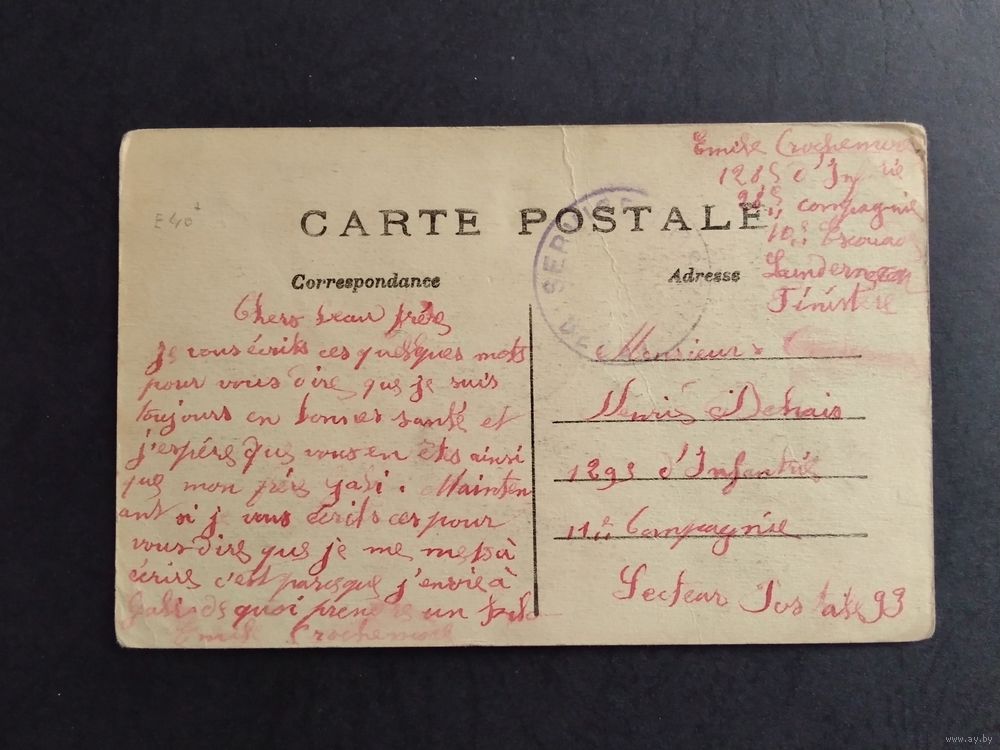 Emile Crochemore
128e d'Infrie
28e compagnie
10e Escouade
Landerneau
Finistère
E 40
CARTE POSTALE
SERVICE
DE
Correspondance
Adresse
Chers beau frère
je vous écrits ces quelques mots
pour vous dire que je suis
toujours en bonnes santé et
j'espére que vous en êtes ainsi
que mon frére Gabi. Mainten
ant si je vous écrits ces pour
vous dire que je me mets à
écrire c'est parceque j'envie à
Gabi de quoi prendre un
Emile Crochemore
Monsieur
Henri Dehais
129e d'Infantrie
11e Compagnie
Secteur Postale 93
www.ay.by